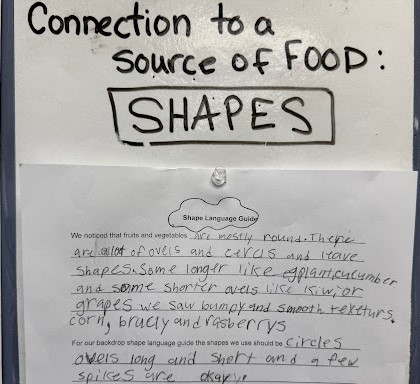 Connection to a
source of FOOD:
SHAPES
Shape Language Guide
We noticed that fruits and vegetables are mostly round. There
are alot of ovels and cercls and leave
shapes. Some longer like egplant, cucumber
and some shorter ovels like kiwi, or
grapes we saw bumpy and smooth textturs.
corn, and rasberrys
For our backdrop shape language guide the shapes we use should be circles
ovels long and short and a few
spikes are okay.